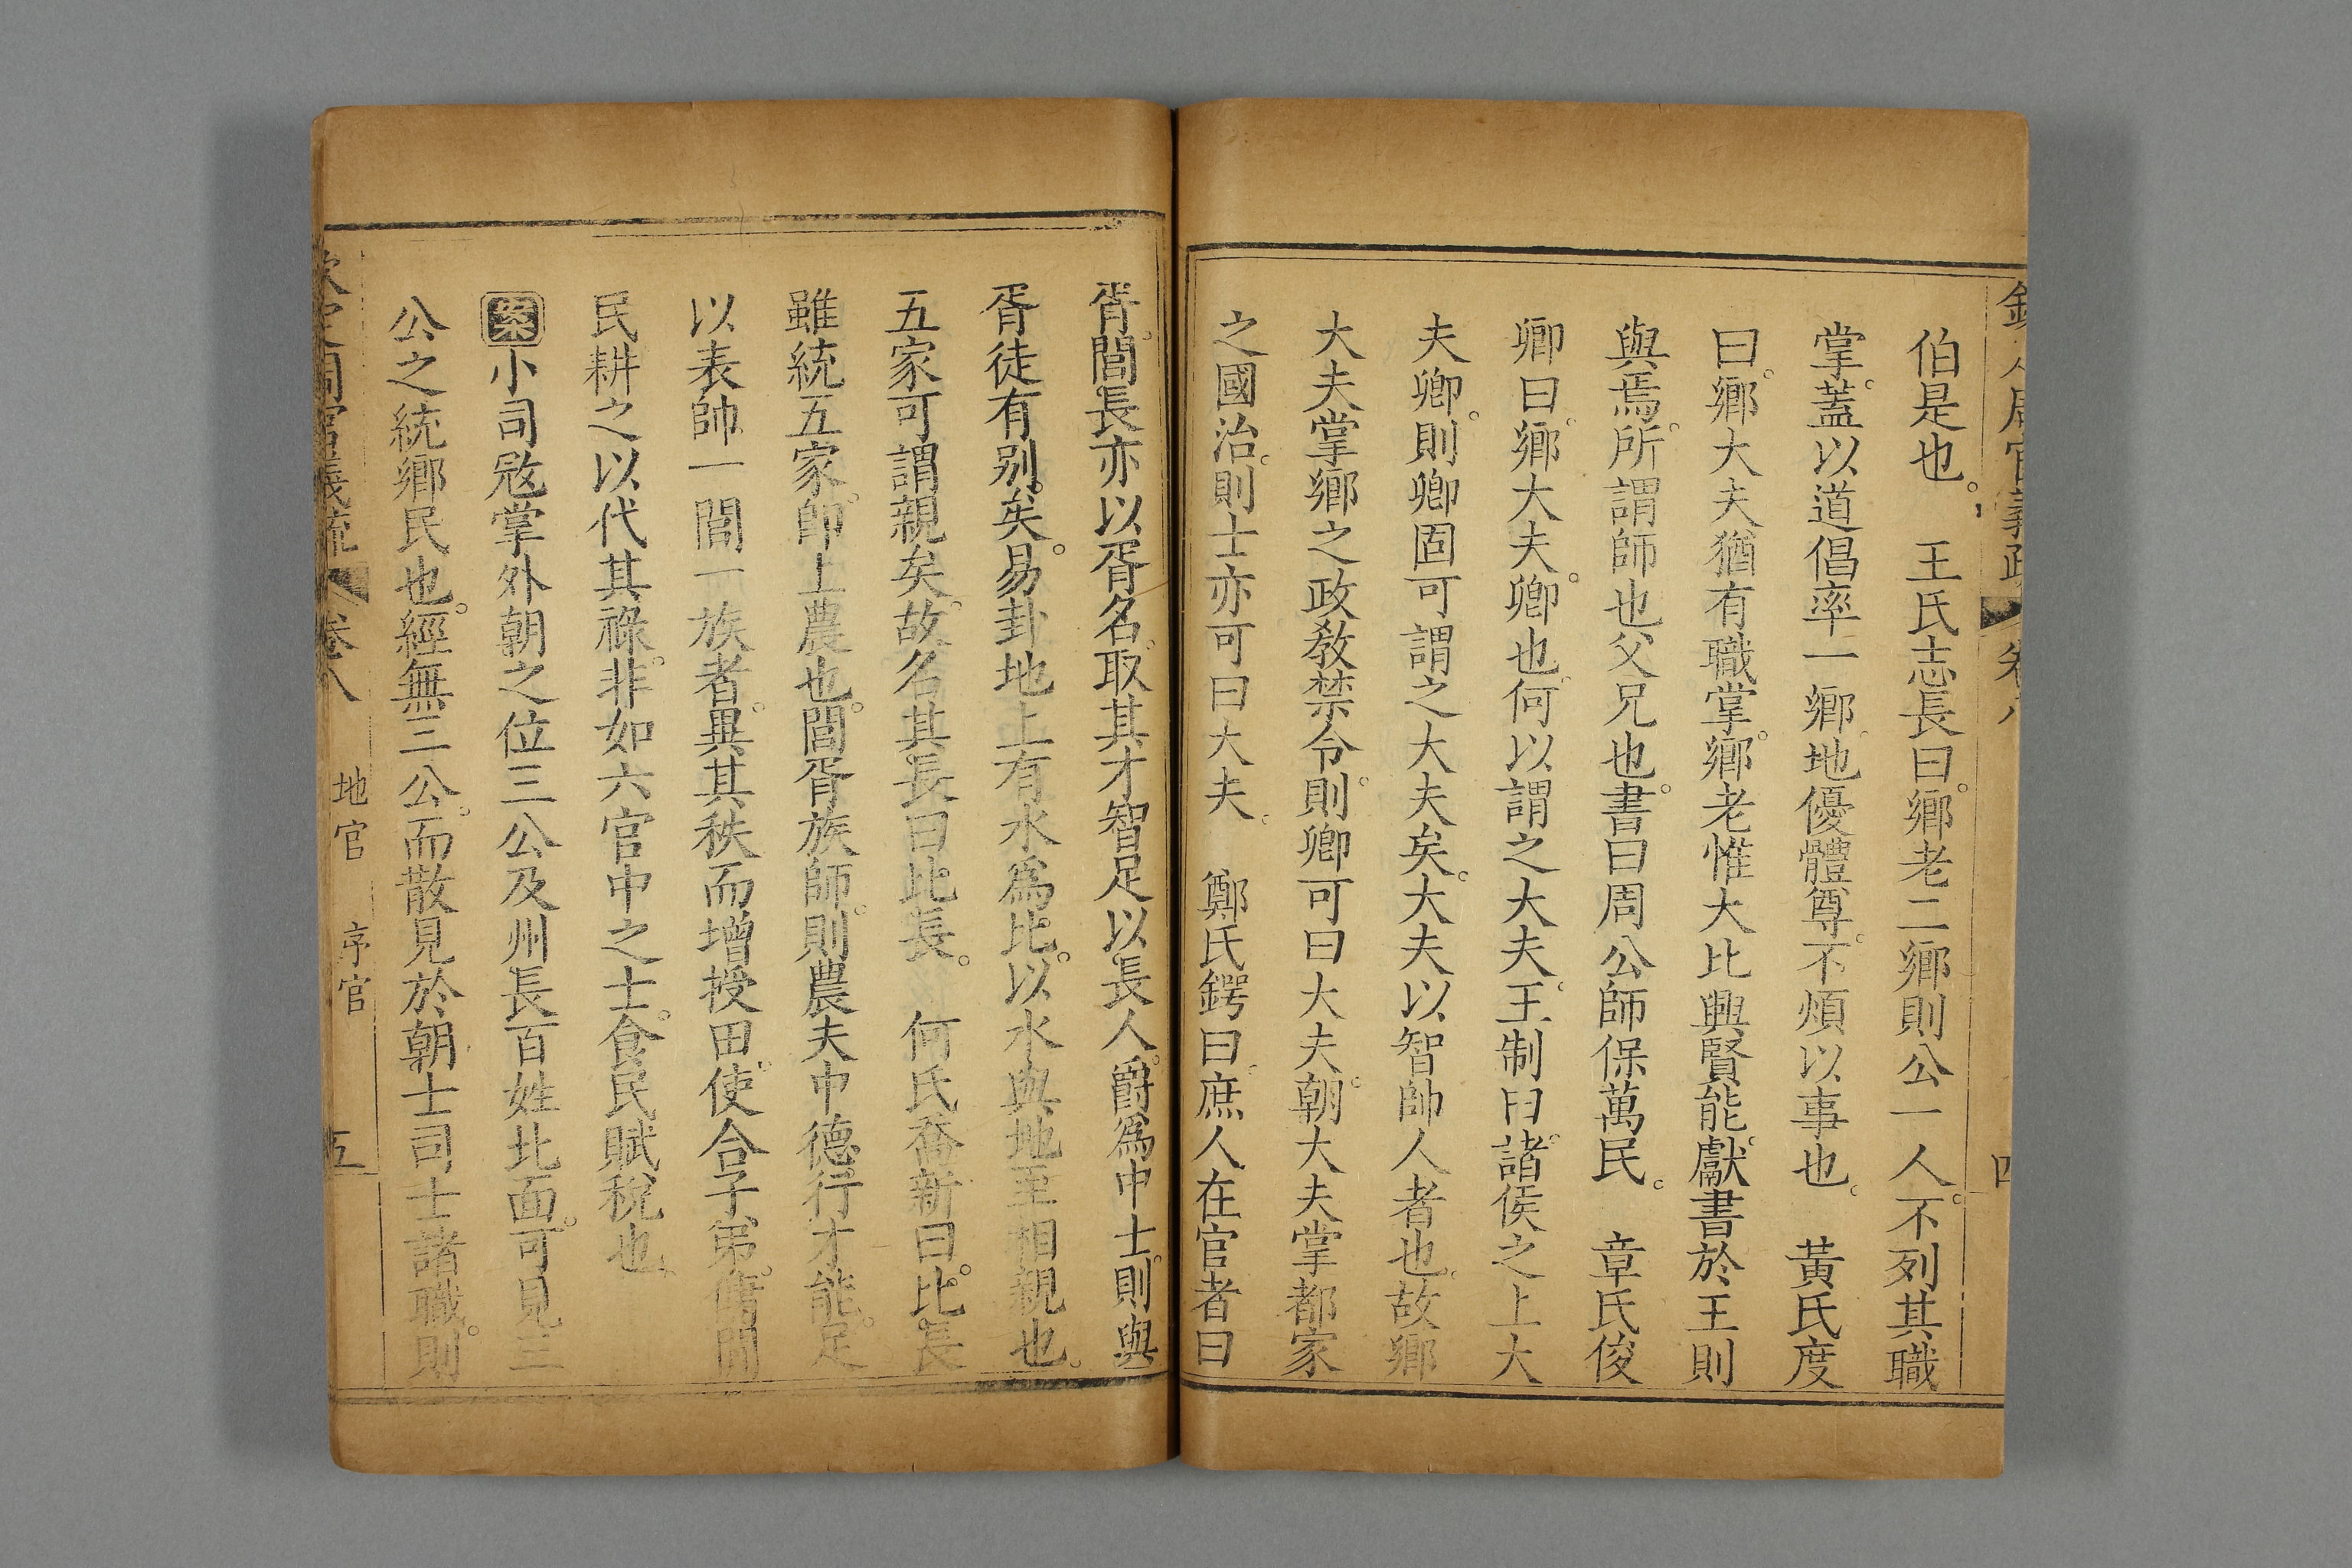 伯是也。　王氏志長曰。鄉老二鄉則公一人。不列其職
掌。蓋以道倡率一鄉。地優體尊。不煩以事也。　黃氏度
曰。鄉大夫猶有職掌。鄉老惟大比興賢能。獻書於王則
與焉。所謂師也父兄也。書曰周公師保萬民。　章氏俊
卿曰。鄉大夫。卿也。何以謂之大夫。王制曰。諸侯之上大
夫卿。則卿固可謂之大夫矣。大夫以智帥人者也。故鄉
大夫掌鄉之政教禁令。則卿可曰大夫。朝大夫掌都家
之國治。則士亦可曰大夫。　鄭氏鍔曰。庶人在官者曰
胥。閭長亦以胥名。取其才智足以長人。爵爲中士。則與
胥徒有別矣。易卦地上有水爲比。以水與地至相親也。
五家可謂親矣。故名其長曰比長。　何氏喬新曰。比長
雖統五家。卽上農也。閭胥族師。則農夫中德行才能。足
以表帥一閭一族者。異其秩而增授田。使合子弟。傭閒
民耕之以代其祿。非如六官中之士。食民賦稅也。
案小司寇掌外朝之位三公及州長百姓北面。可見三
公之統鄉民也。經無三公。而散見於朝士司士諸職。則
卷八　地官　序官　五